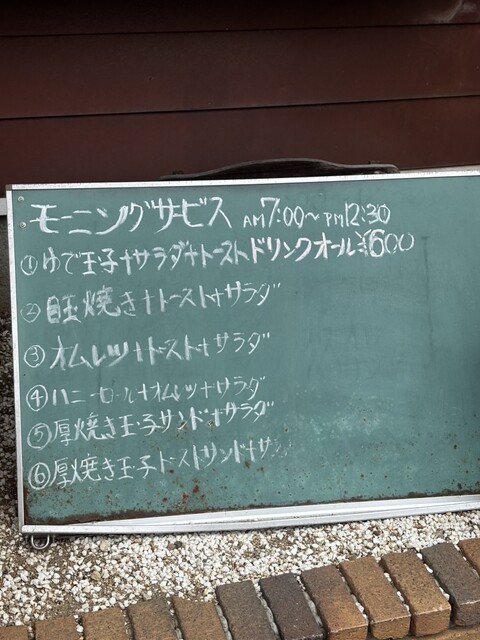 モーニングサービス AM7:00〜PM12:30
①ゆで玉子+サラダ+トースト ドリンクオール¥600
②目玉焼き+トースト+サラダ
③オムレツ+トースト+サラダ
④ハニーロール+オムレツ+サラダ
⑤厚焼き玉子サンド+サラダ
⑥厚焼き玉子トーストサンド+サ